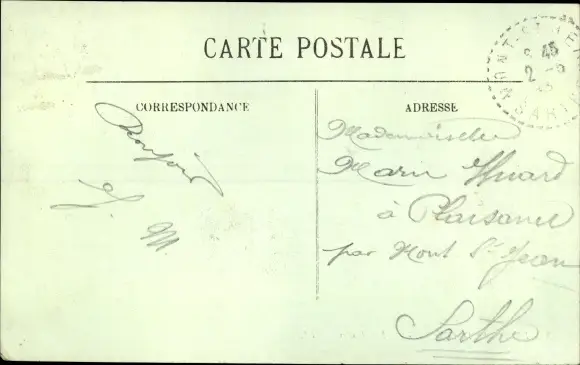 CARTE POSTALE
CORRESPONDANCE
Bonjour
L. M
ADRESSE
Mademoiselle
Marie Huard
à Plaisance
par Mont St Jean
Sarthe
8 45
2
SARTHE